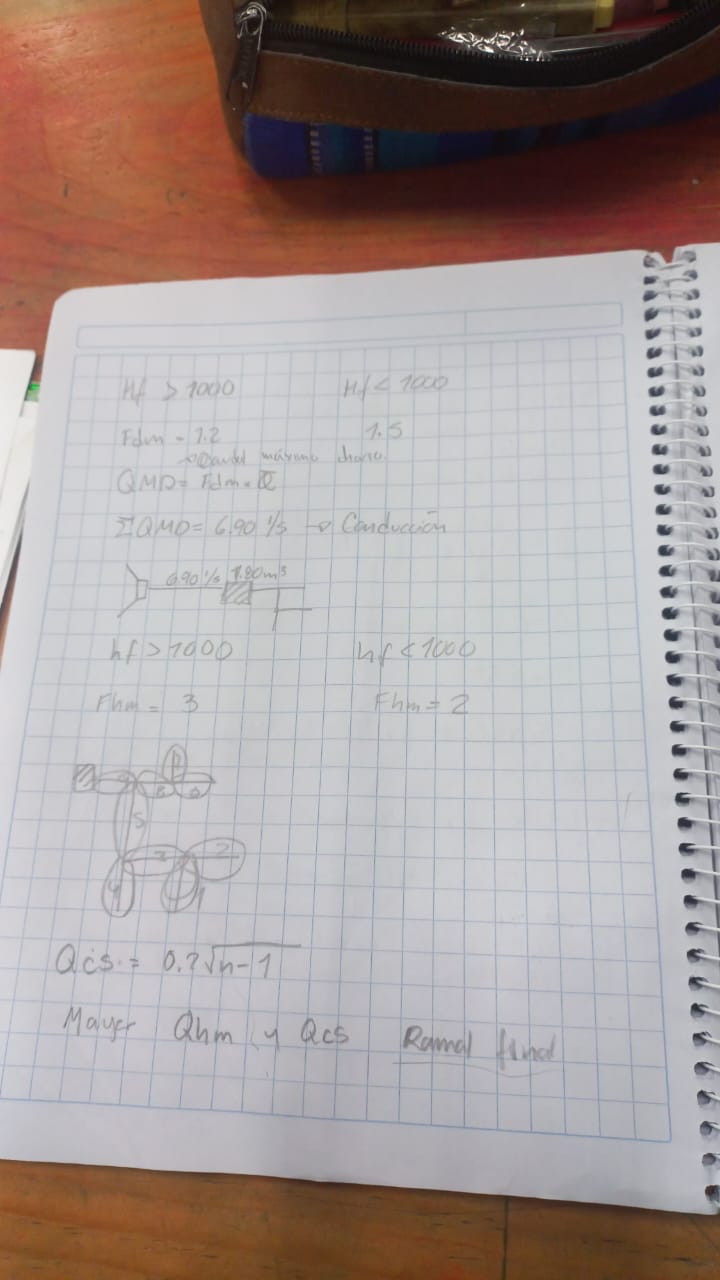 Hf > 1000 Hf < 1000
Fdm = 1.2 1.5
→ Caudal máximo diario.
QMD = Fdm * Q̅
ΣQMD = 6.90 l/s → Conducción
6.90 l/s 1.80 m³
hf > 1000 hf < 1000
Fhm = 3 Fhm = 2
8
5
3 2
4 1
Qcs. = 0.2√n-1
Mayor Qhm y Qcs Ramal final